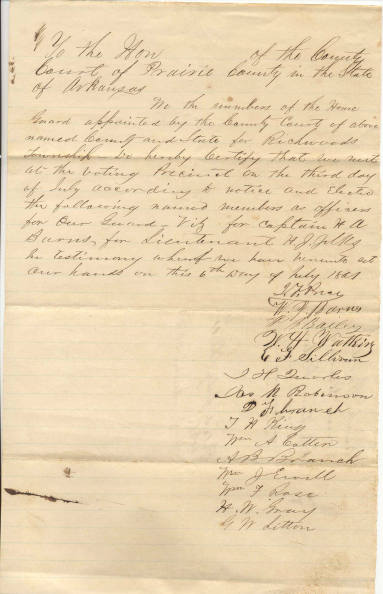 To the Hon of the County
Court of Prairie County in the State
of Arkansas
We the members of the Home
Guard appointed by the County Court of above
named County and State for Richwoods
Township Do hereby Certify that we met
at the voting Precinct on the third day
of July according to notice and Elected
the following named members as officers
for Our Guard - Viz for Captain H A
Burns, for Lieutenant H. J.
In testimony whereof we have hereunto set
Our hands on this 6th Day of July 1861
Price
W. F. Barns
Bailey
W. H. Watkins
Sillivan
J H Quarles
Jas N Robinson
D F branch
T H King
Wm A Cotten
A B Branch
Wm J Ewell
Wm F Rose
H. W. Gray
G W Litton